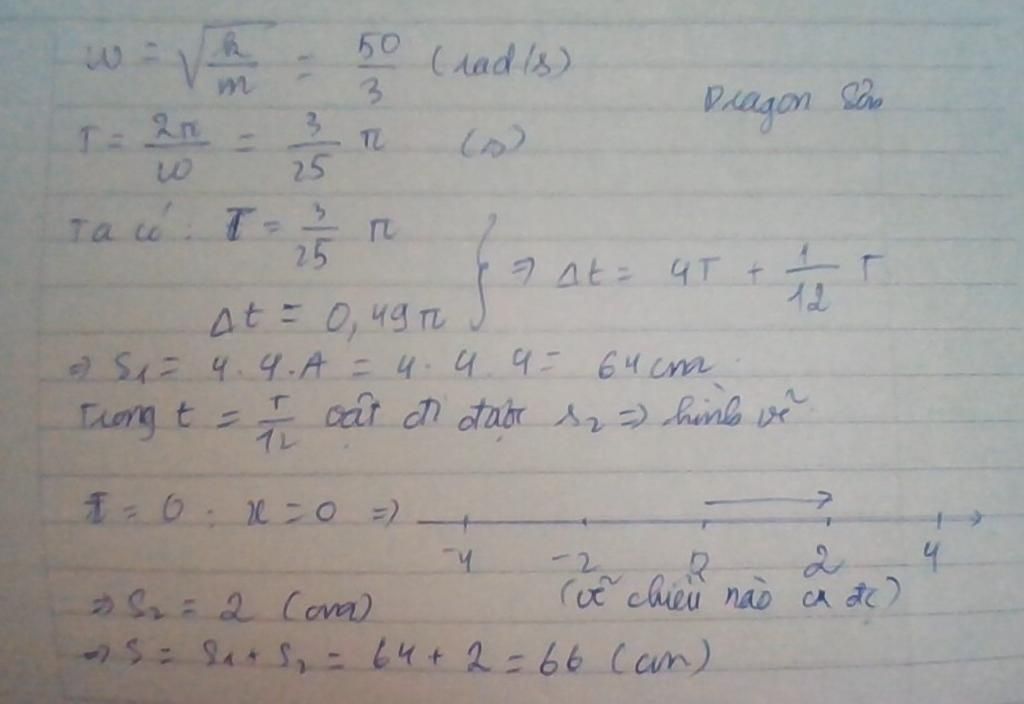 ω = √(k/m) = 50/3 (rad/s)
Dragon Sôn
T = 2π/ω = 3/25 π (s)
Ta có: T = 3/25 π
Δt = 0,49π } => Δt = 4T + 1/12 T
=> S₁ = 4.4.A = 4.4.4 = 64 cm
Trong t = T/12 vật đi được s₂ => hình vẽ
t = 0 : x = 0 =>
-4 -2 0 2 4
=> S₂ = 2 (cm) (vẽ chiều nào cx đc)
=> S = S₁ + S₂ = 64 + 2 = 66 (cm)